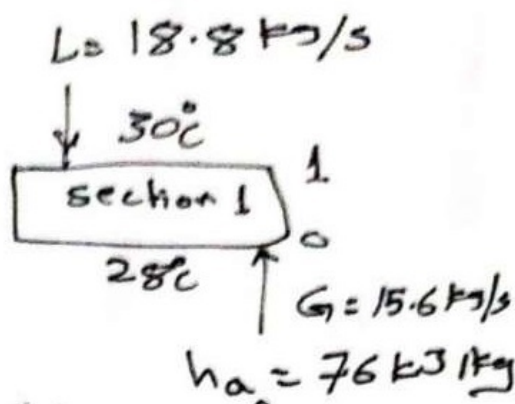 L= 18.8 kg/s
30°c
section 1 1
0
28°c
G=15.6 kg/s
ha = 76 kJ/kg